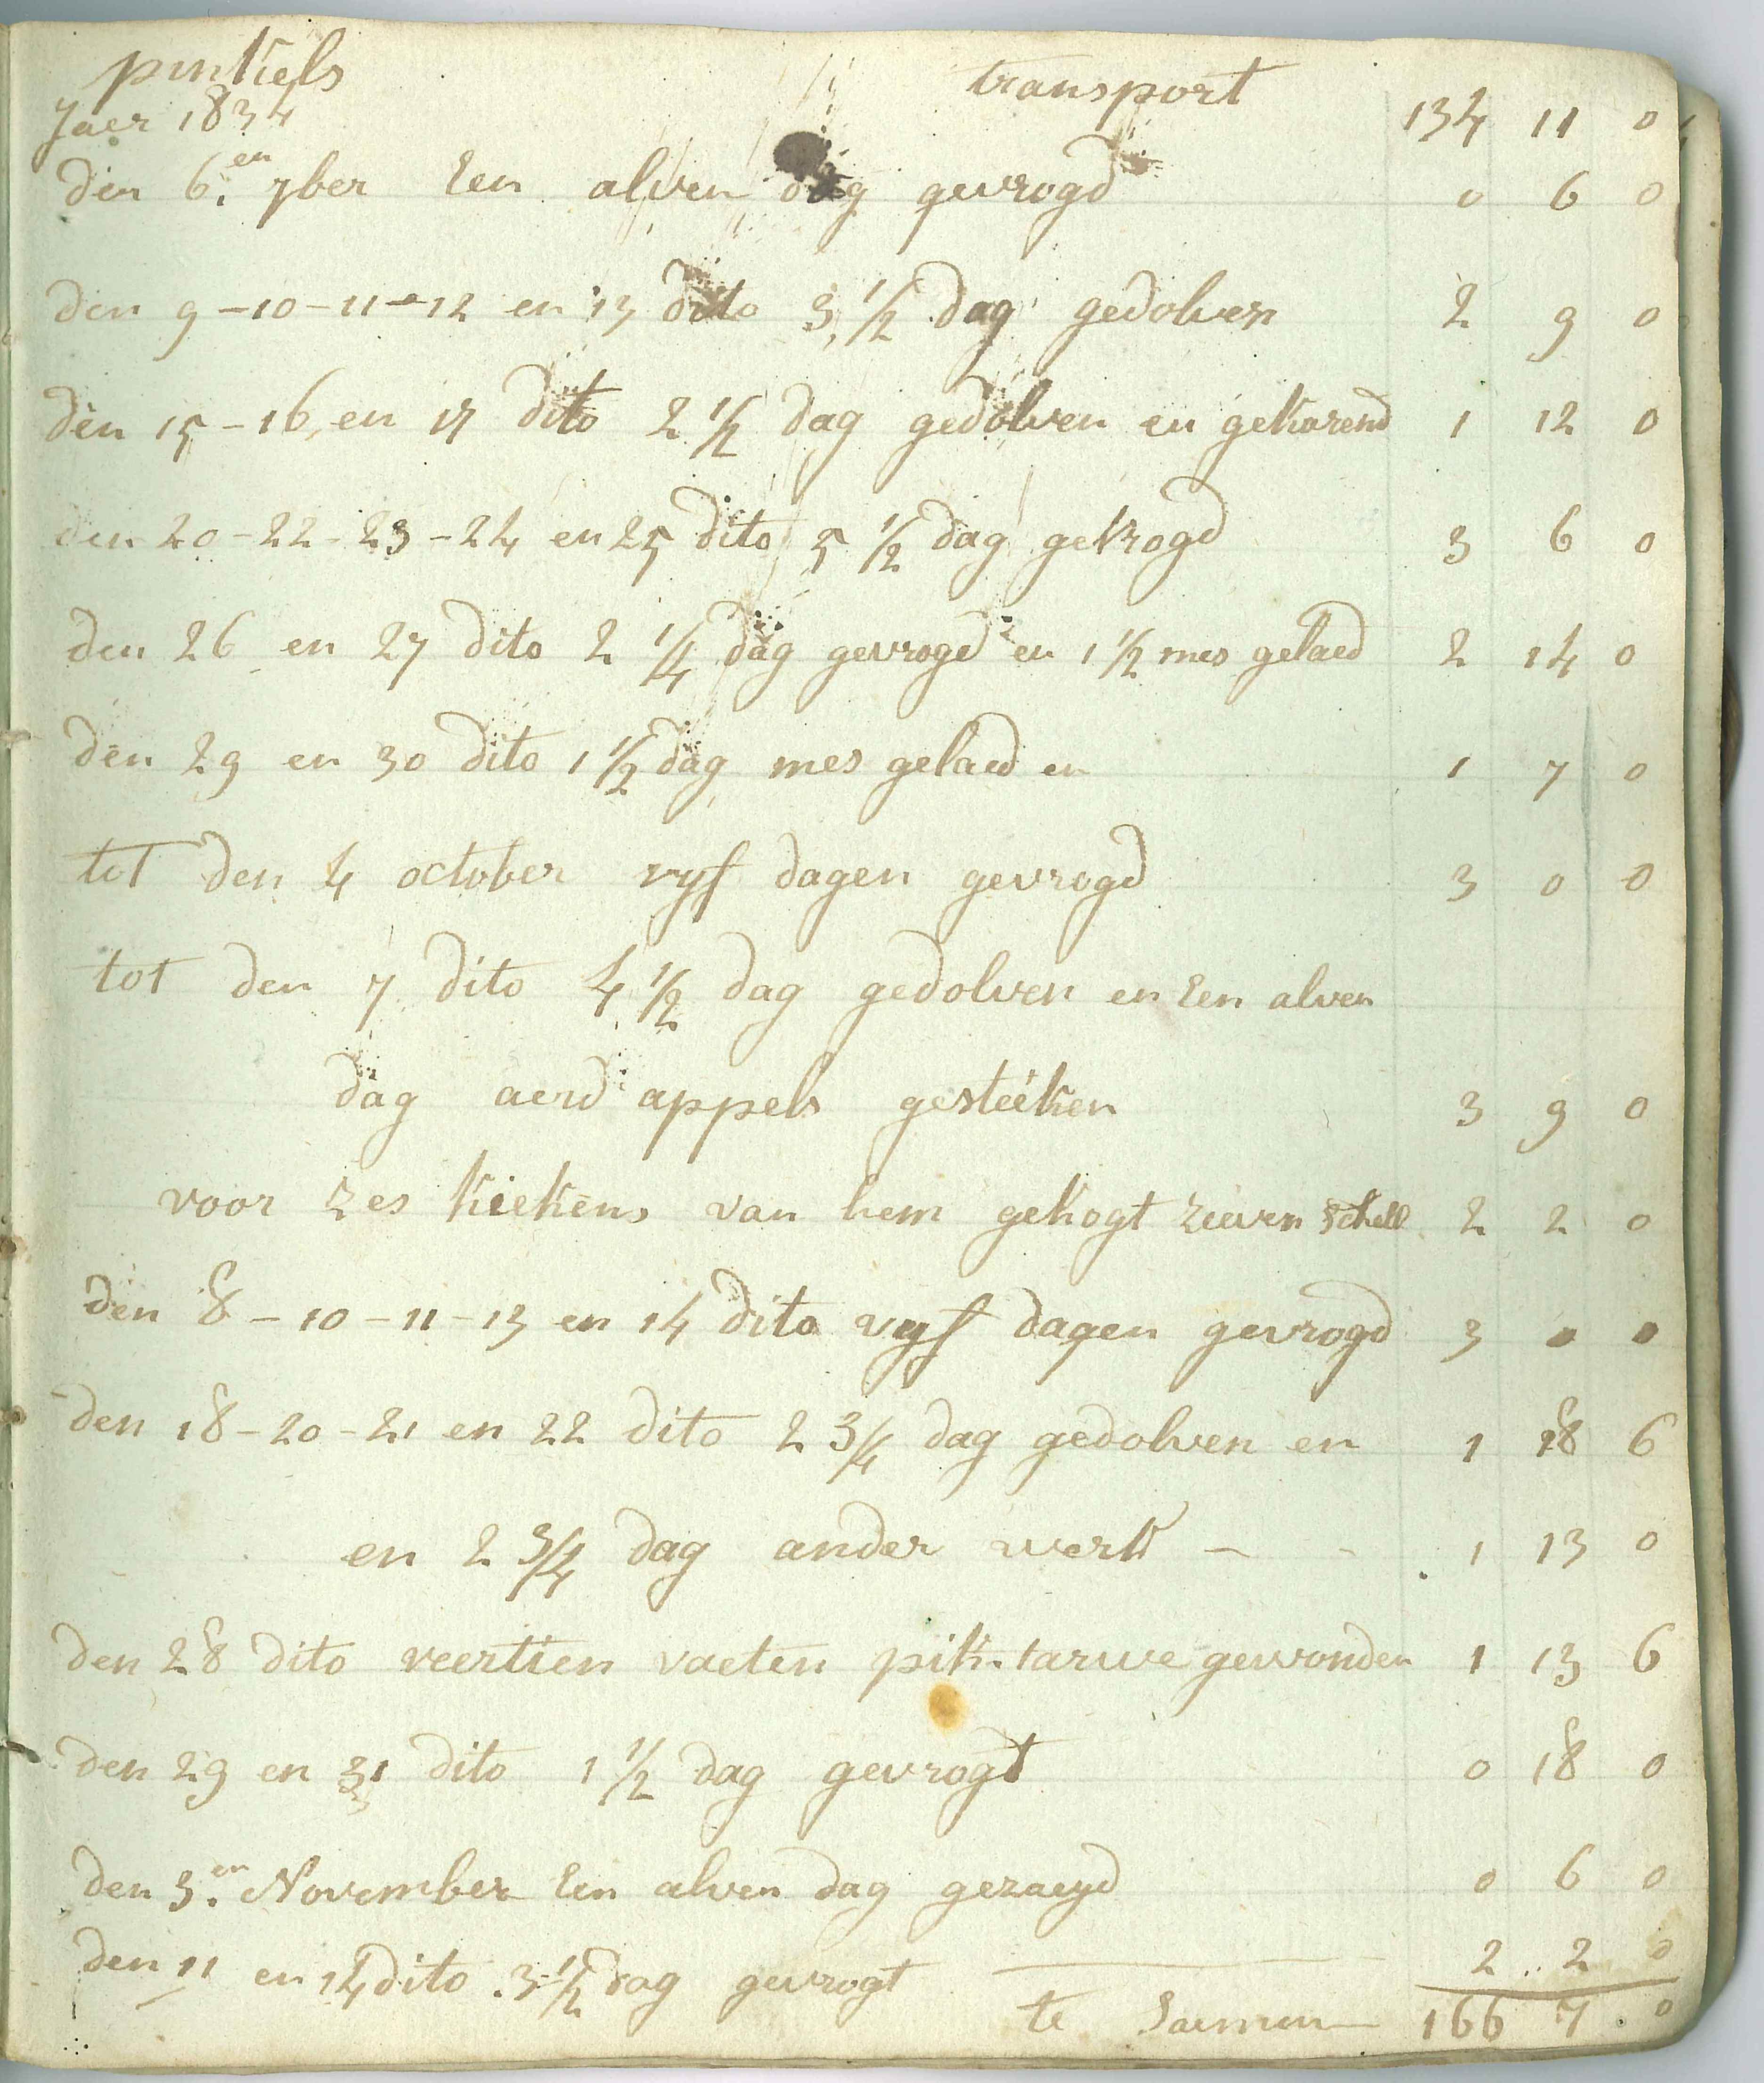 pintiels transport 134 11 0
Jaer 1834
den 6.en 7ber Een alven dag gevrogd 0 6 0
den 9-10-11-12 en 13 dito 3 1/2 dag gedolven 2 9 0
den 15-16 en 17 dito 2 1/2 dag gedolven en gekarend 1 12 0
den 20-22-23-24 en 25 dito 5 1/2 dag gevrogd 3 6 0
den 26 en 27 dito 2 1/4 dag gevrogd en 1 1/2 mes gelaed 2 14 0
den 29 en 30 dito 1 1/2 dag mes gelaed en 1 7 0
tot den 4 october vyf dagen gevrogd 3 0 0
tot den 7 dito 4 1/2 dag gedolven en Een alven
dag aerd appels gesteéken 3 9 0
voor zes kiekens van hem gekogt zeeven schell 2 2 0
den 8-10-11-13 en 14 dito vyf dagen gevrogd 3 0 0
den 18-20-21 en 22 dito 2 3/4 dag gedolven en 1 18 6
en 2 3/4 dag ander werk - - 1 13 0
den 28 dito veertien vaeten pik tarwe gewonden 1 13 6
den 29 en 31 dito 1 1/2 dag gevrogt 0 18 0
den 3.en November Een alven dag gezaeyd 0 6 0
den 11 en 14 dito .3-1/2 dag gevrogt 2 .. 2 0
te Saemen 166 7 . 0